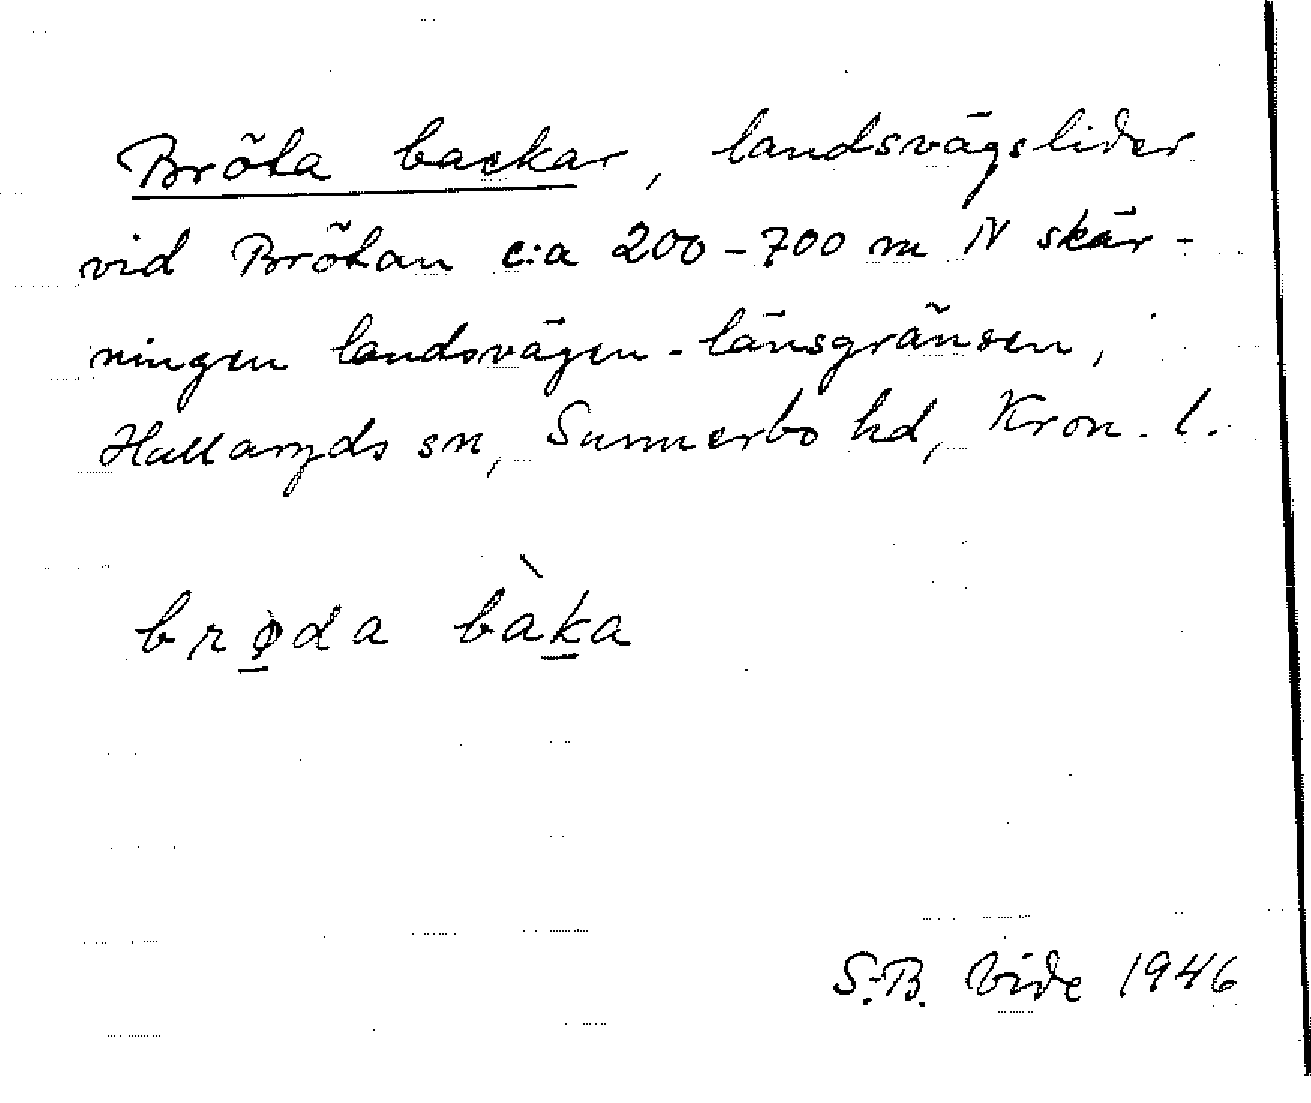 Bröta backar, landsvägslider
vid Brötan c:a 200-700 m N skär-
ningen landsvägen-länsgränsen,
Hallaryds sn, Sunnerbo hd, Kron. l.
brø̱da bàḵa
S.-B. Vide 1946